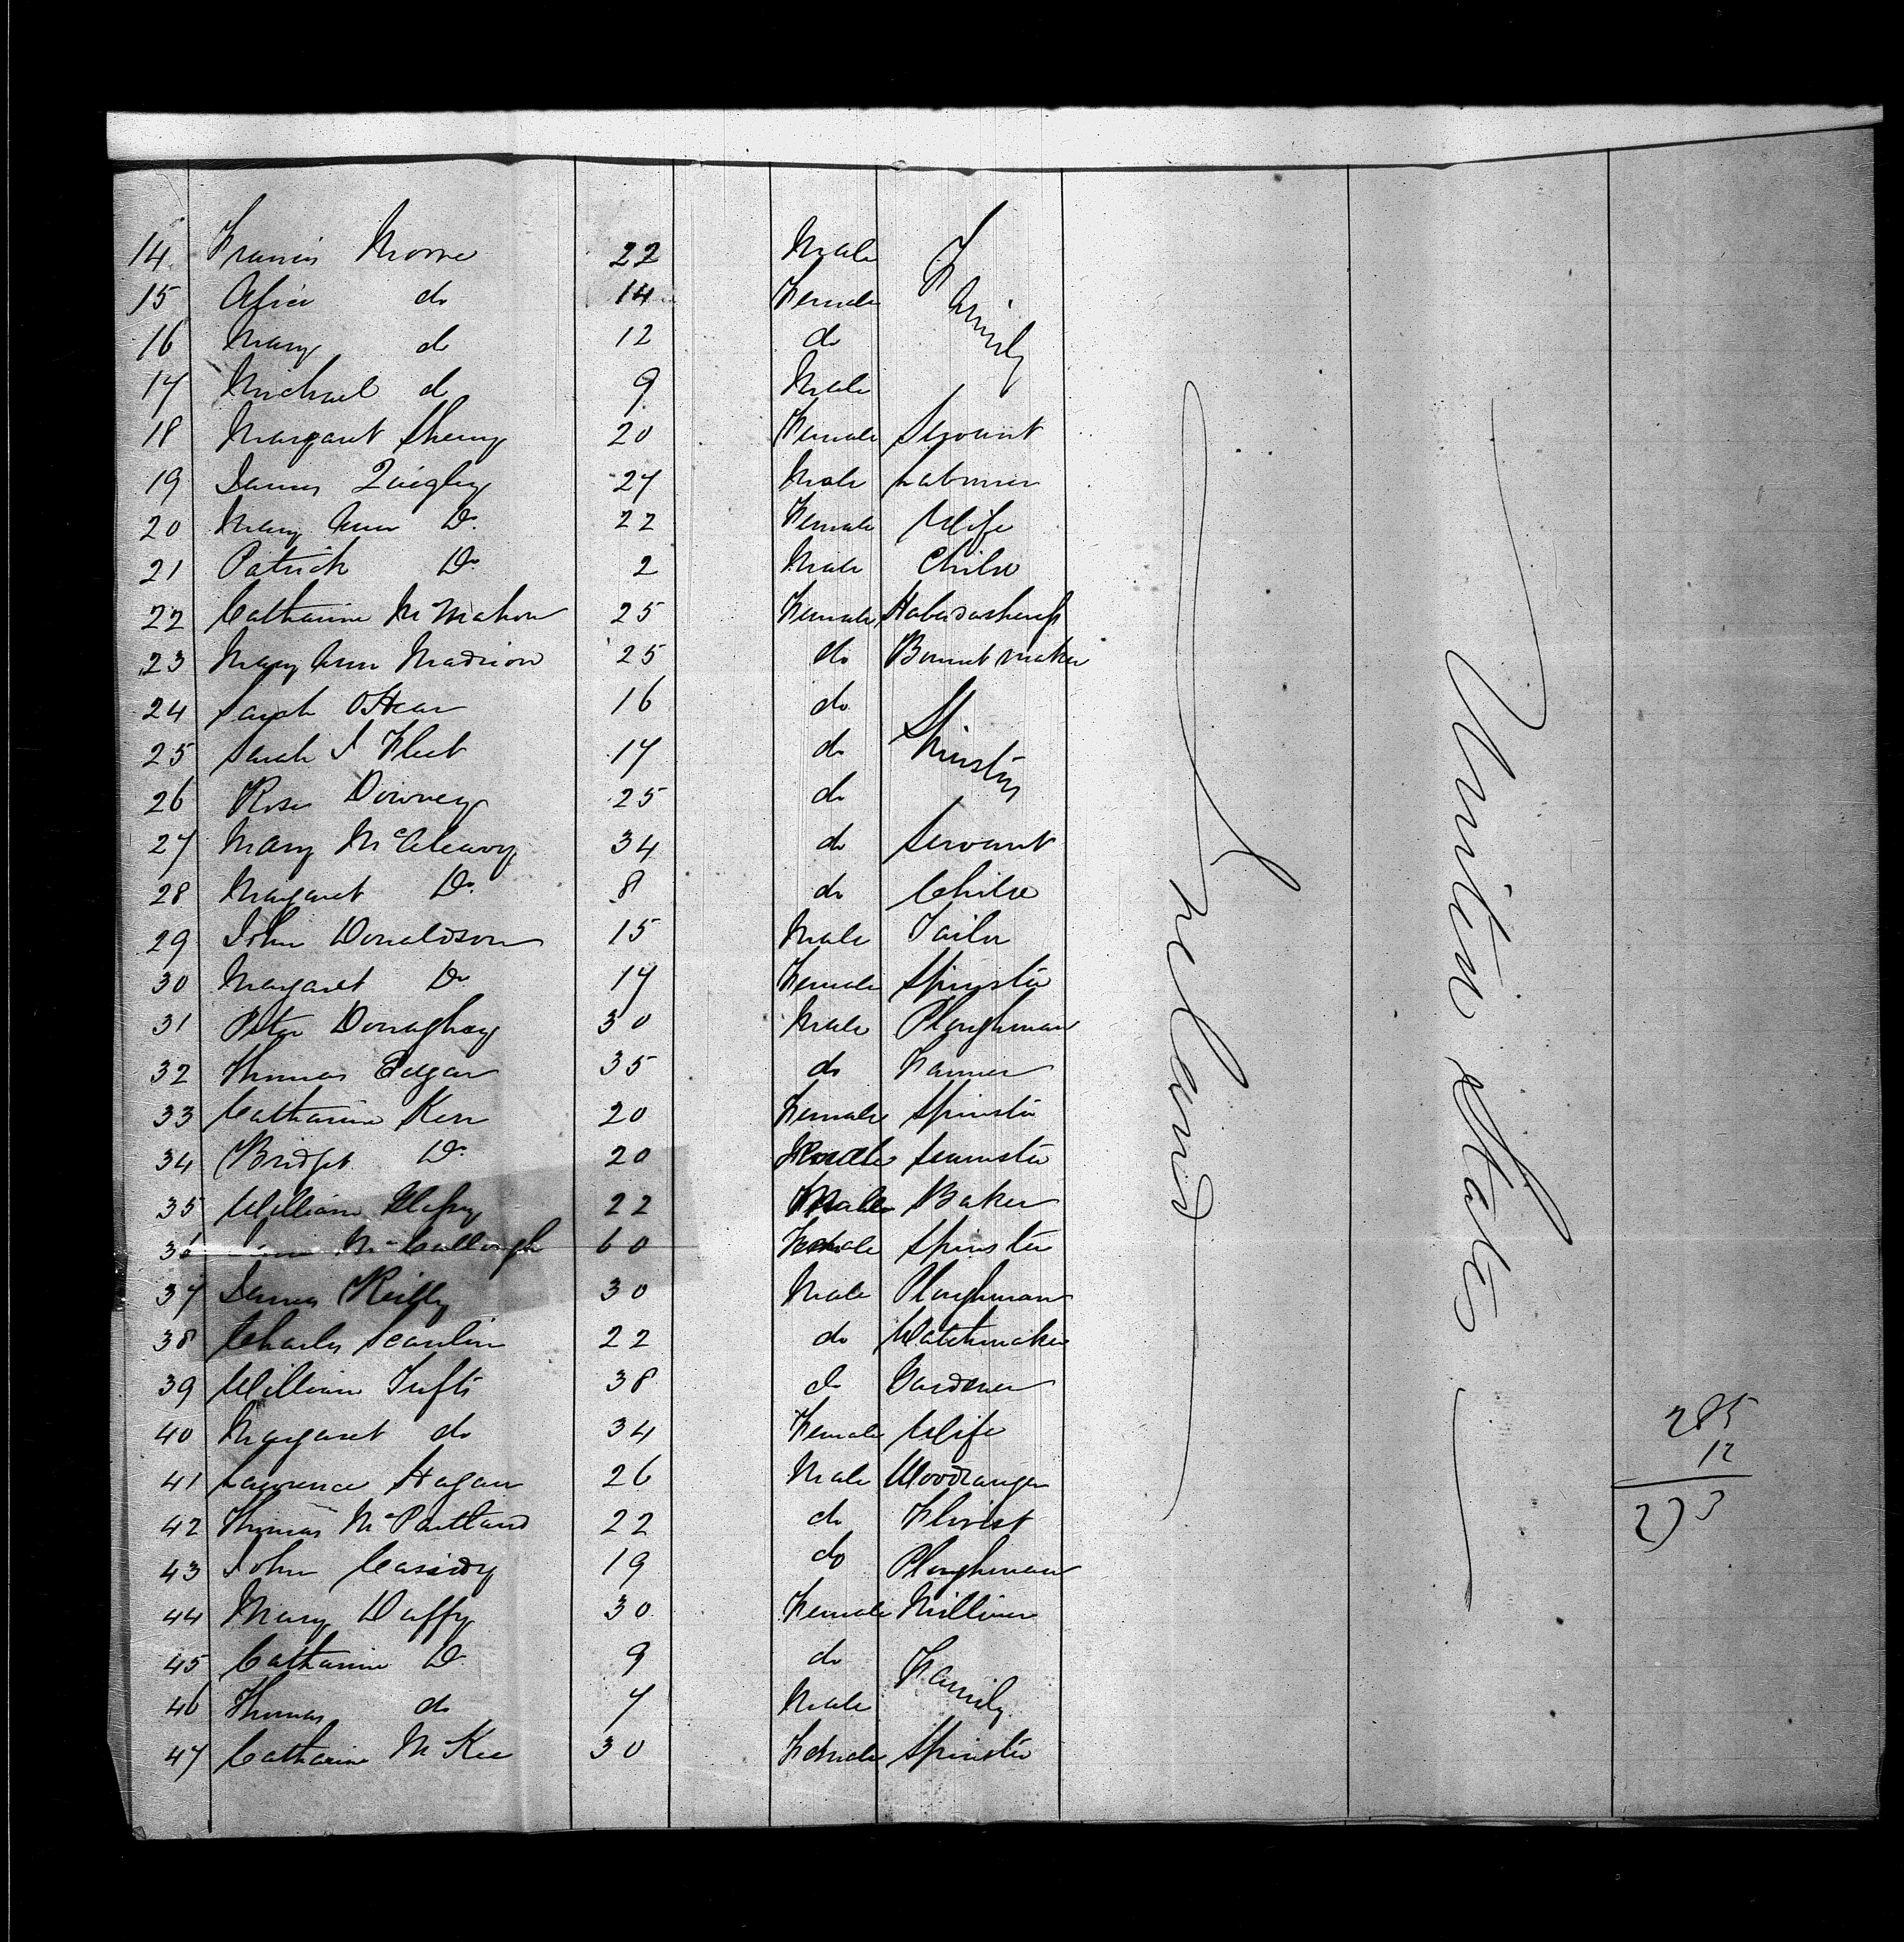 14 Francis 22 Male Family
15 do 14 Female
16 Mary do 12 do
17 Michael do 9 Male
18 Margaret Sherry 20 Female Servant
19 James Quigley 27 Male Labourer
20 Mary Ann Do. 22 Female Wife
21 Patrick Do 2 Male Child
22 Catharine McMahon 25 Female
23 Mary Ann Madison 25 do Bonnet maker
24 Sarah O'Hear 16 do Spinsters
25 Sarah J Fleet 17 do
26 Rose Downey 25 do
27 Mary McAleavy 34 do Servant
28 Margaret Do. 8 do Child
29 John Donaldson 15 Male Tailor
30 Margaret Do 17 Female Spinster
31 Peter Donaghey 30 Male Ploughman
32 Thomas Edgar 35 do Farmer
33 Catharine Kerr 20 Female Spinster
34 Bridget Do 20 Female
35 William 22 Male Baker
36 McCullough 60 Female Spinster
37 James Reilly 30 Male Ploughman
38 Charles Scanlin 22 do Watchmaker
39 William Tufts 38 do Gardener
40 Margaret do 34 Female Wife
41 Lawrence Hagan 26 Male Woodranger
42 Thomas McPartland 22 do Florist
43 John Cassidy 19 do Ploughman
44 Mary Duffy 30 Female Milliner
45 Catharine Do 9 do Family
46 Thomas do 7 Male
47 Catharine McKee 30 Female Spinster
Ireland
United States
285
12
273